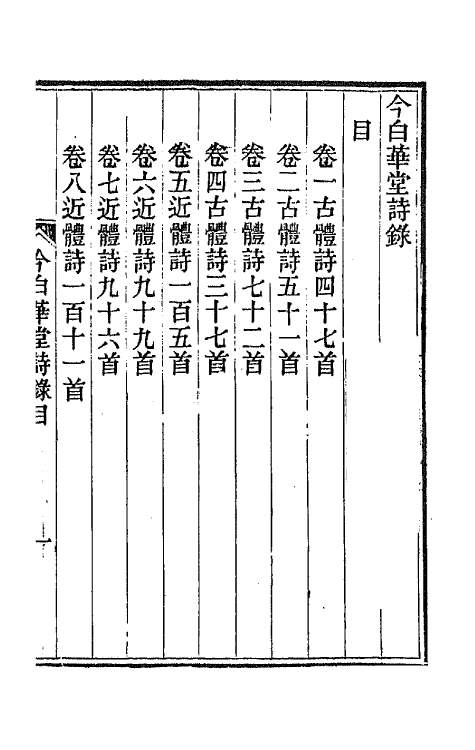 今白華堂詩錄
目
卷一古體詩四十七首
卷二古體詩五十一首
卷三古體詩七十二首
卷四古體詩三十七首
卷五近體詩一百五首
卷六近體詩九十九首
卷七近體詩九十六首
卷八近體詩一百十一首
今白華堂詩錄目
一